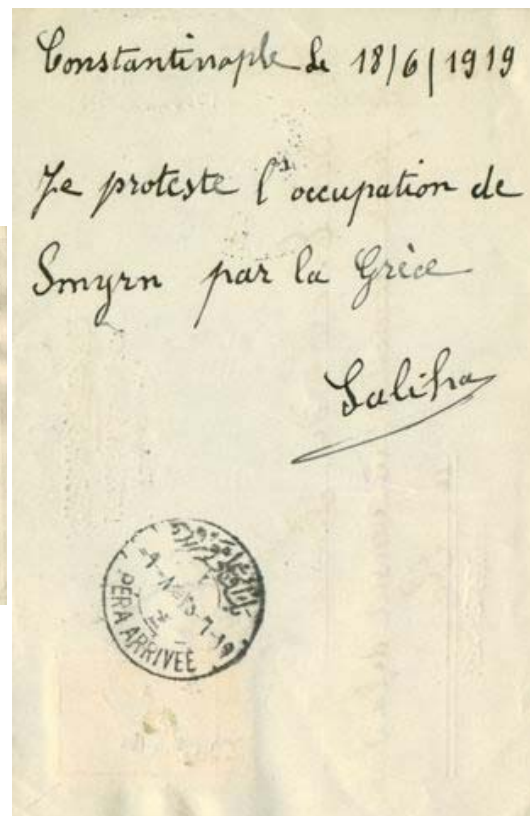 Constantinople le 18/6/1919
Je proteste l'occupation de
Smyrn par la Grèce
Saliha
PÉRA ARRIVÉE